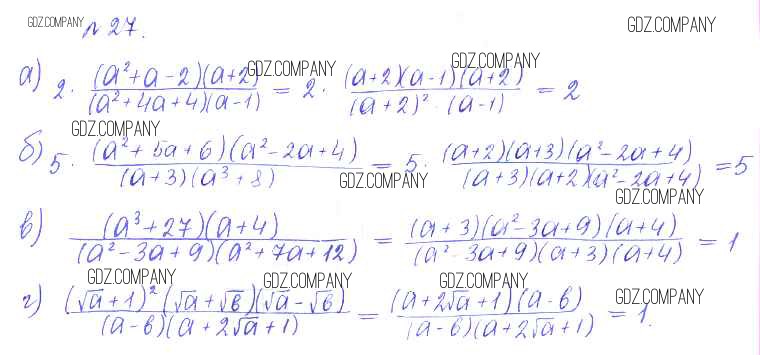 GDZ.COMPANY № 27. GDZ.COMPANY
а) 2 · ((a²+a-2)(a+2))/((a²+4a+4)(a-1)) = 2 · ((a+2)(a-1)(a+2))/((a+2)² · (a-1)) = 2
GDZ.COMPANY GDZ.COMPANY
GDZ.COMPANY
б) 5 · ((a²+5a+6)(a²-2a+4))/((a+3)(a³+8)) = 5 · ((a+2)(a+3)(a²-2a+4))/((a+3)(a+2)(a²-2a+4)) = 5
GDZ.COMPANY GDZ.COMPANY
в) ((a³+27)(a+4))/((a²-3a+9)(a²+7a+12)) = ((a+3)(a²-3a+9)(a+4))/((a²-3a+9)(a+3)(a+4)) = 1
GDZ.COMPANY GDZ.COMPANY GDZ.COMPANY
г) ((√a+1)²(√a+√в)(√a-√в))/((a-в)(a+2√a+1)) = ((a+2√a+1)(a-в))/((a-в)(a+2√a+1)) = 1.
GDZ.COMPANY